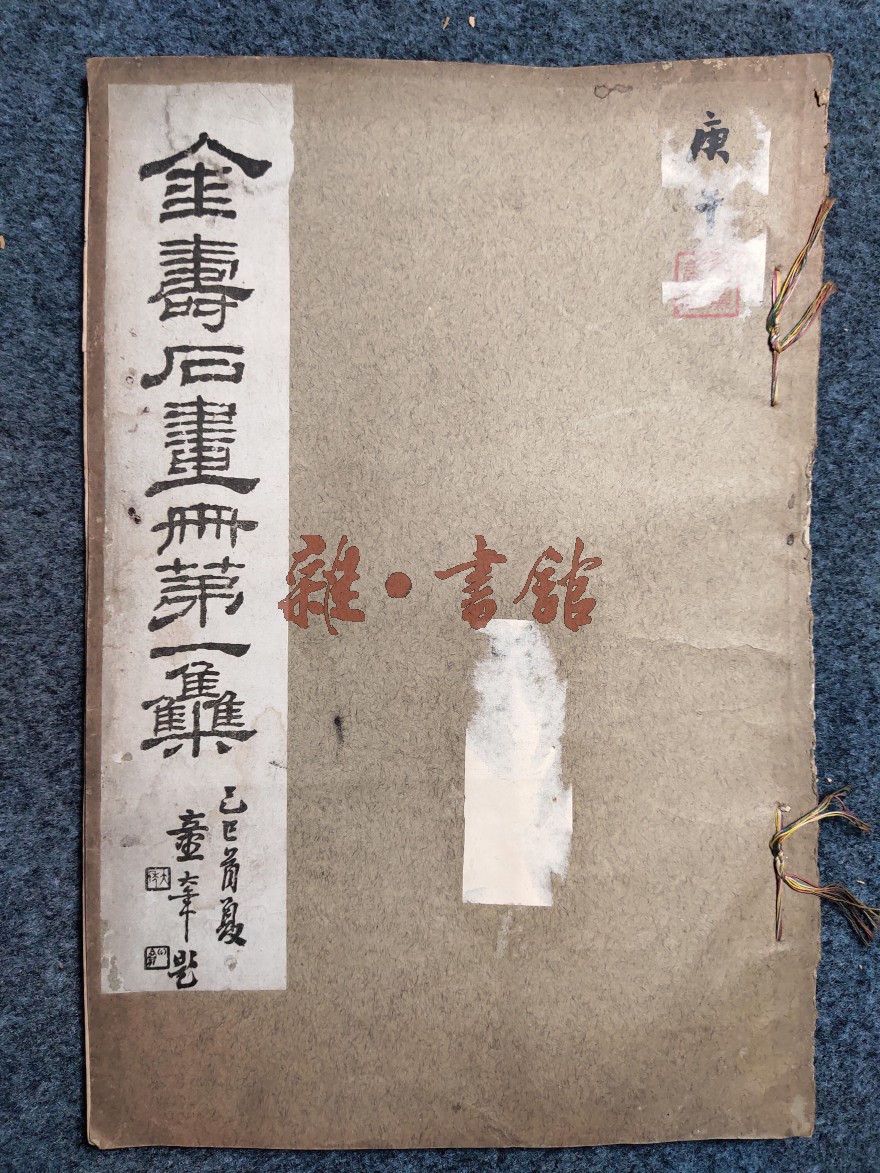 金壽石畫冊第一集
己巳首夏
童大年題
庚
雜·書館